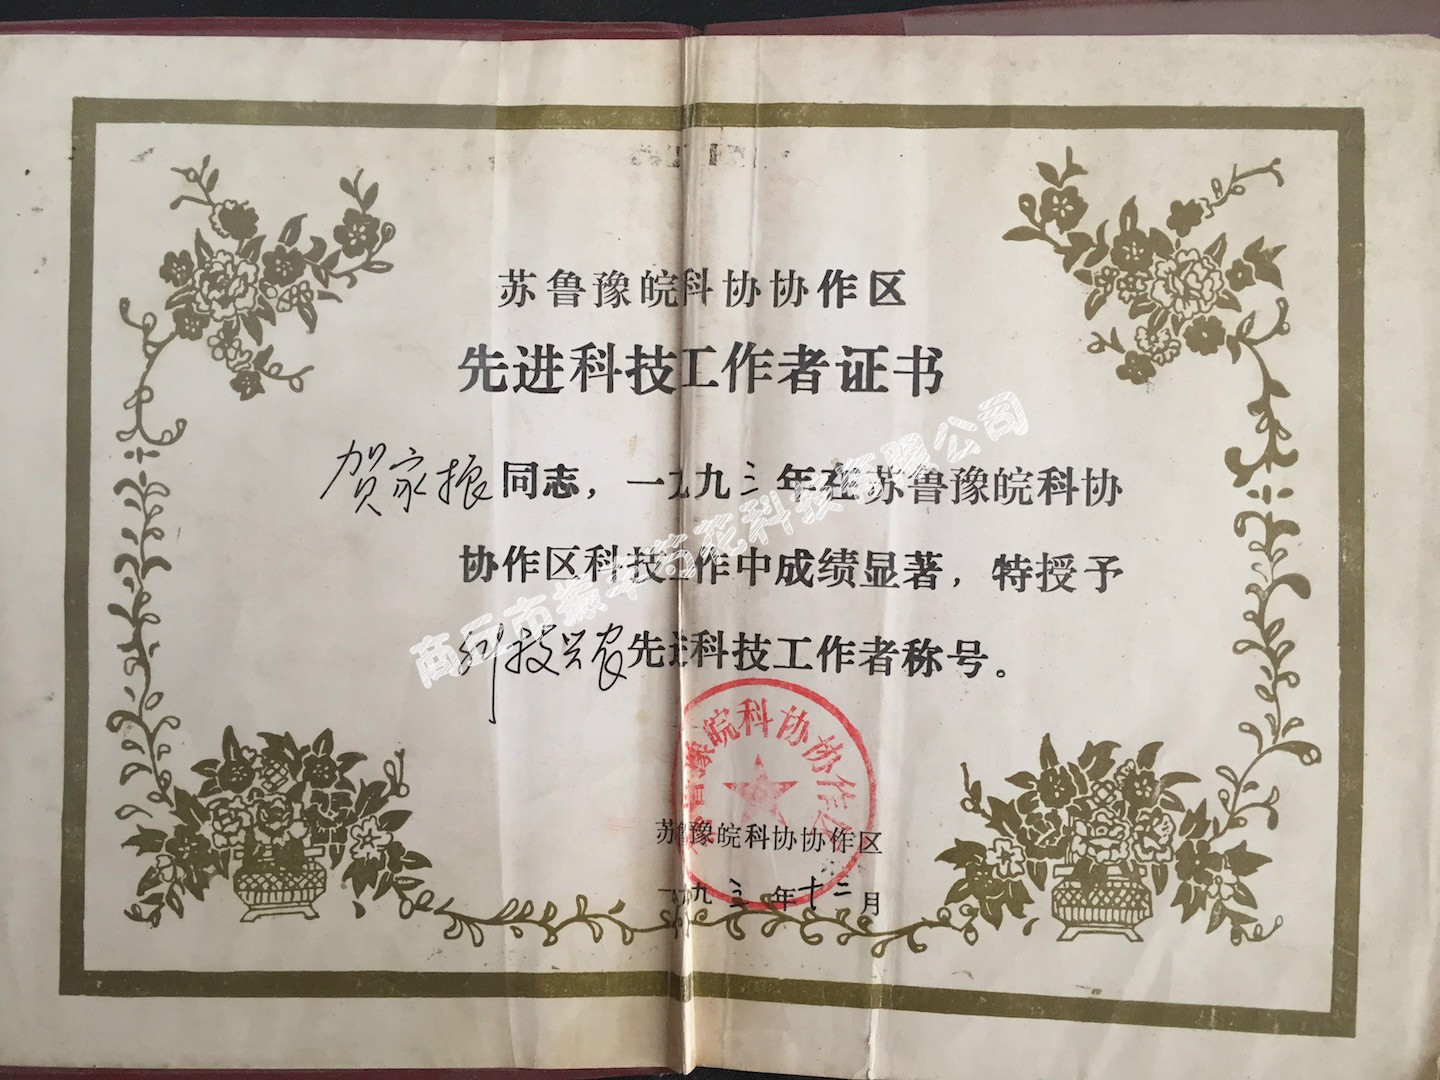 苏鲁豫皖科协协作区
先进科技工作者证书
贺家振同志，一九九三年在苏鲁豫皖科协
协作区科技工作中成绩显著，特授予
科技兴农先进科技工作者称号。
苏鲁豫皖科协协作区
苏鲁豫皖科协协作区
一九九三年十二月
商丘市振丰菊花科技有限公司